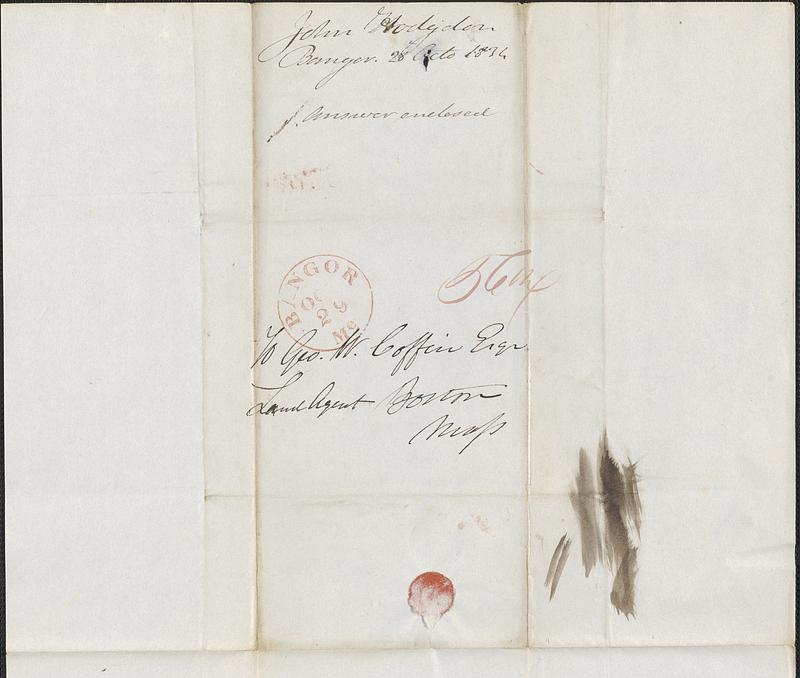 John Hodgdon
Bangor. 28 Octo 1834
Answer enclosed
BANGOR Me
OC
29
To Geo. W. Coffin Esqr.
Land Agent Boston
Mass